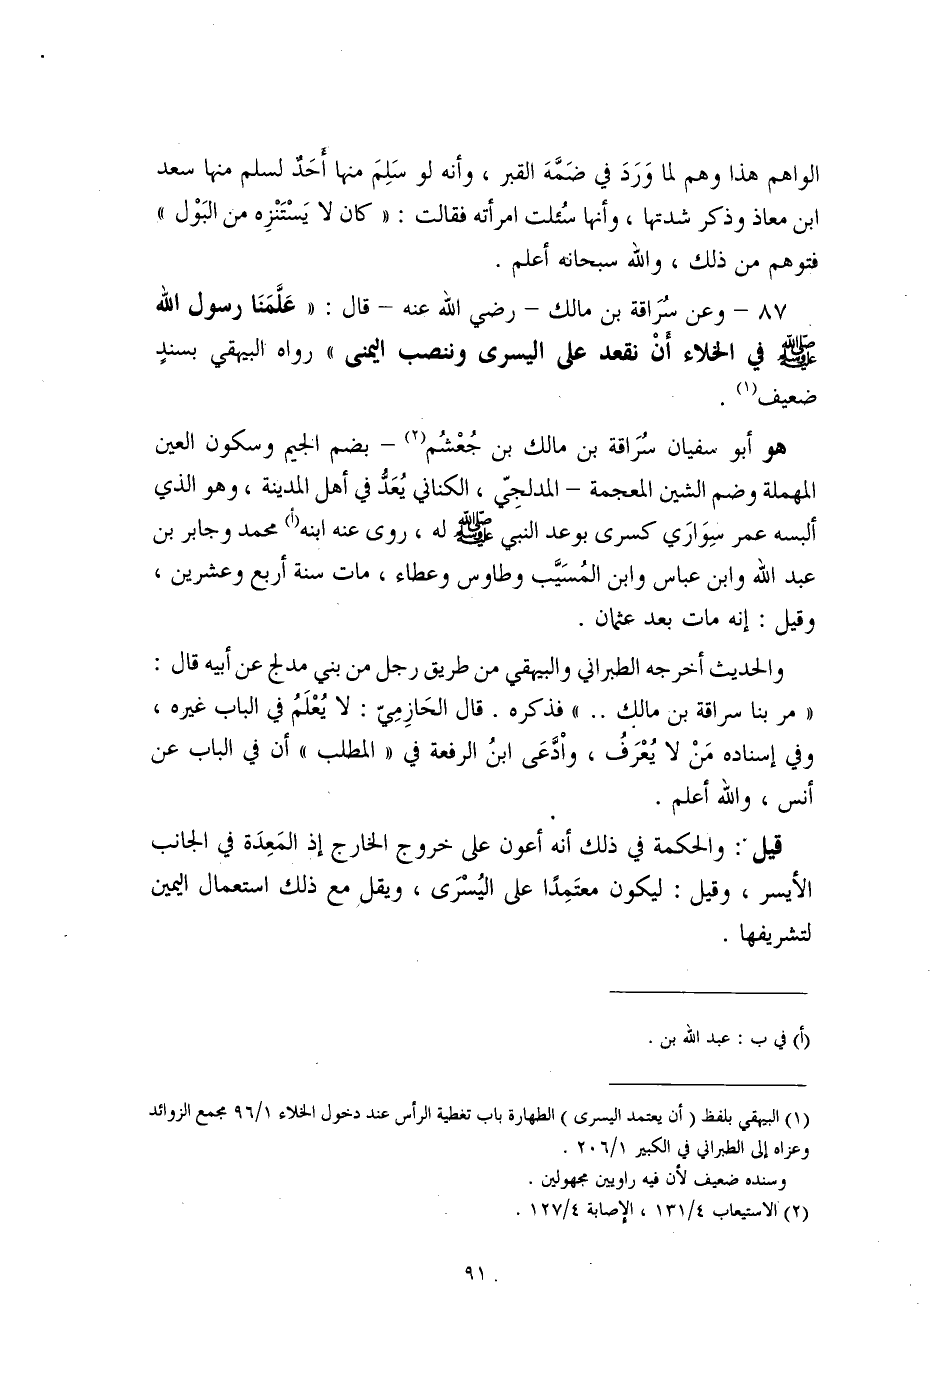 الواهم هذا وهم لما وَرَدَ في ضَمَّة القبر ، وأنه لو سَلِمَ منها أَحَدٌ لسلم منها سعد
ابن معاذ وذكر شدتها ، وأنها سُئلت امرأته فقالت : « كان لا يَسْتَنْزِه من البَوْل »
فتوهم من ذلك ، والله سبحانه أعلم .
٨٧ – وعن سُرَاقة بن مالك – رضي الله عنه – قال : « عَلَّمَنَا رسول الله
ﷺ في الخلاء أَنْ نقعد على اليسرى وننصب اليمنى » رواه البيهقي بسندٍ
ضعيف(١) .
هو أبو سفيان سُرَاقة بن مالك بن جُعْشُم(٢) – بضم الجيم وسكون العين
المهملة وضم الشين المعجمة – المدلجيّ ، الكناني يُعَدُّ في أهل المدينة ، وهو الذي
ألبسه عمر سِوَارَي كسرى بوعد النبي ﷺ له ، روى عنه ابنه(أ) محمد وجابر بن
عبد الله وابن عباس وابن المُسَيَّب وطاوس وعطاء ، مات سنة أربع وعشرين ،
وقيل : إنه مات بعد عثمان .
والحديث أخرجه الطبراني والبيهقي من طريق رجل من بني مدلج عن أبيه قال :
« مر بنا سراقة بن مالك .. » فذكره . قال الحَازِمِيّ : لا يُعْلَمُ في الباب غيره ،
وفي إسناده مَنْ لا يُعْرَفُ ، واْدَّعَى ابنُ الرفعة في « المطلب » أن في الباب عن
أنس ، والله أعلم .
قيل : والحكمة في ذلك أنه أعون على خروج الخارج إذ المَعِدَة في الجانب
الأيسر ، وقيل : ليكون معتَمِدًا على اليُسْرَى ، ويقل مع ذلك استعمال اليمين
لتشريفها .
(أ) في ب : عبد الله بن .
(١) البيهقي بلفظ ( أن يعتمد اليسرى ) الطهارة باب تغطية الرأس عند دخول الخلاء ٩٦/١ مجمع الزوائد
وعزاه إلى الطبراني في الكبير ٢٠٦/١ .
وسنده ضعيف لأن فيه راويين مجهولين .
(٢) الاستيعاب ١٣١/٤ ، الإصابة ١٢٧/٤ .
٩١